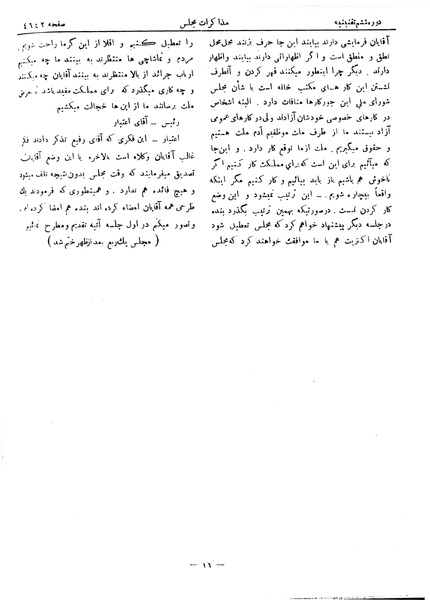 دوره ششم تقنینیه
مذاکرات مجلس
صفحه ۴۶۴۲
آقایان فرمایشی دارند بیایند این جا حرف بزنند مجلس محل
نطق و منطق است و اگر اظهاراتی دارند بیایند و اظهار
دارند. دیگر چرا اینطور میکنند قهر کردن و آنطرف
نشستن این کار های مکتب خانه است با شأن مجلس
شورای ملی این جور کارها منافات دارد. البته اشخاص
در کارهای خصوصی خودشان آزادند ولی در کارهای عمومی
آزاد نیستند ما از طرف ملت موظفیم آدم ملت هستیم
و حقوق میگیریم. ملت از ما توقع کار دارد. و این جا
که میآئیم برای این است که برای مملکت کار کنیم اگر
ناخوش هم باشیم باز باید بیائیم و کار کنیم مگر اینکه
واقعاً بیچاره شویم. ـ این ترتیب نمیشود و این وضع
کار کردن نیست. در صورتیکه بهمین ترتیب بگذرد بنده
در جلسه دیگر پیشنهاد خواهم کرد که مجلس تعطیل شود
آقایان اکثریت هم با ما موافقت خواهند کرد که مجلس
را تعطیل کنیم و اقلا از این گرما راحت شویم.
مردم و تماشاچی ها منتظرند به بینند ما چه میکنیم
ارباب جرائد از بالا منتظرند به بینند آقایان چه میکنند
و چه کاری میگذرد که برای مملکت مفید باشد
ملت برسانند ما از این ها خجالت میکشیم
رئیس ـ آقای اعتبار
اعتبار ـ این فکری که آقای رفیع تذکر دادند فکر
غالب آقایان وکلاء است بالاخره با این وضع آقایان
تصدیق میفرمایند که وقت مجلس بدون نتیجه تلف میشود
و هیچ فائده هم ندارد. و همینطوری که فرمودند یك
طرحی همه آقایان امضاء کرده اند بنده هم امضا کرده ام.
و تصور میکنم در اول جلسه آتیه تقدیم و مطرح نمائیم
( مجلس یك ربع بعد از ظهر ختم شد )
— ۱۶ —